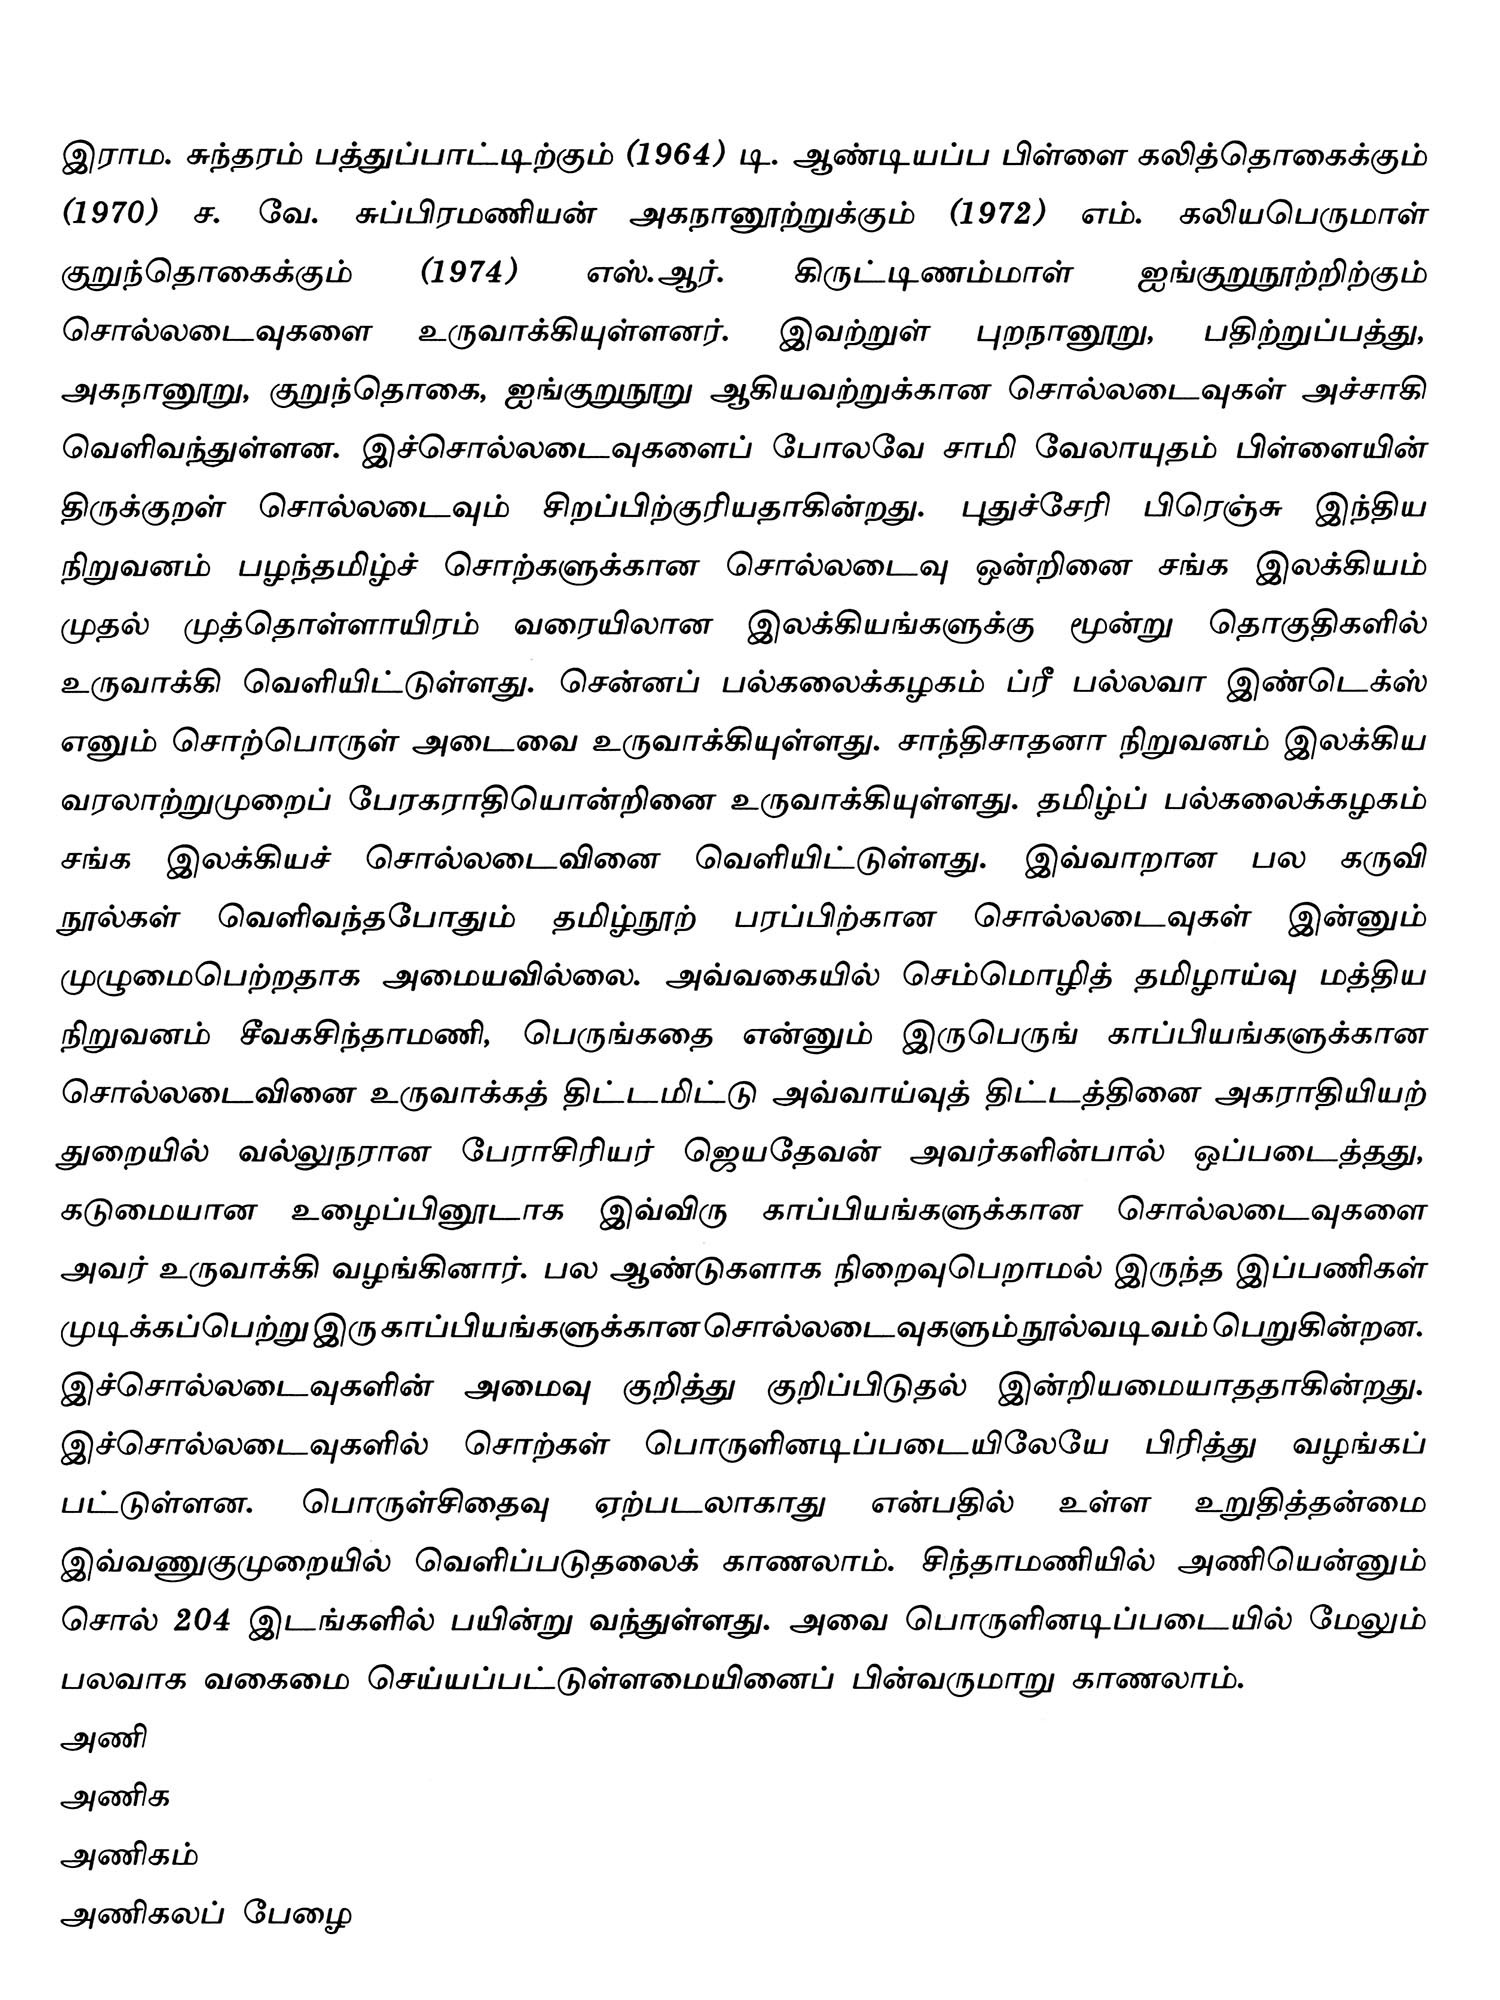 இராம. சுந்தரம் பத்துப்பாட்டிற்கும் (1964) டி. ஆண்டியப்ப பிள்ளை கலித்தொகைக்கும்
(1970) ச. வே. சுப்பிரமணியன் அகநானூற்றுக்கும் (1972) எம். கலியபெருமாள்
குறுந்தொகைக்கும் (1974) எஸ்.ஆர். கிருட்டிணம்மாள் ஐங்குறுநூற்றிற்கும்
சொல்லடைவுகளை உருவாக்கியுள்ளனர். இவற்றுள் புறநானூறு, பதிற்றுப்பத்து,
அகநானூறு, குறுந்தொகை, ஐங்குறுநூறு ஆகியவற்றுக்கான சொல்லடைவுகள் அச்சாகி
வெளிவந்துள்ளன. இச்சொல்லடைவுகளைப் போலவே சாமி வேலாயுதம் பிள்ளையின்
திருக்குறள் சொல்லடைவும் சிறப்பிற்குரியதாகின்றது. புதுச்சேரி பிரெஞ்சு இந்திய
நிறுவனம் பழந்தமிழ்ச் சொற்களுக்கான சொல்லடைவு ஒன்றினை சங்க இலக்கியம்
முதல் முத்தொள்ளாயிரம் வரையிலான இலக்கியங்களுக்கு மூன்று தொகுதிகளில்
உருவாக்கி வெளியிட்டுள்ளது. சென்னப் பல்கலைக்கழகம் ப்ரீ பல்லவா இண்டெக்ஸ்
எனும் சொற்பொருள் அடைவை உருவாக்கியுள்ளது. சாந்திசாதனா நிறுவனம் இலக்கிய
வரலாற்றுமுறைப் பேரகராதியொன்றினை உருவாக்கியுள்ளது. தமிழ்ப் பல்கலைக்கழகம்
சங்க இலக்கியச் சொல்லடைவினை வெளியிட்டுள்ளது. இவ்வாறான பல கருவி
நூல்கள் வெளிவந்தபோதும் தமிழ்நூற் பரப்பிற்கான சொல்லடைவுகள் இன்னும்
முழுமைபெற்றதாக அமையவில்லை. அவ்வகையில் செம்மொழித் தமிழாய்வு மத்திய
நிறுவனம் சீவகசிந்தாமணி, பெருங்கதை என்னும் இருபெருங் காப்பியங்களுக்கான
சொல்லடைவினை உருவாக்கத் திட்டமிட்டு அவ்வாய்வுத் திட்டத்தினை அகராதியியற்
துறையில் வல்லுநரான பேராசிரியர் ஜெயதேவன் அவர்களின்பால் ஒப்படைத்தது,
கடுமையான உழைப்பினூடாக இவ்விரு காப்பியங்களுக்கான சொல்லடைவுகளை
அவர் உருவாக்கி வழங்கினார். பல ஆண்டுகளாக நிறைவுபெறாமல் இருந்த இப்பணிகள்
முடிக்கப்பெற்று இரு காப்பியங்களுக்கான சொல்லடைவுகளும் நூல்வடிவம் பெறுகின்றன.
இச்சொல்லடைவுகளின் அமைவு குறித்து குறிப்பிடுதல் இன்றியமையாததாகின்றது.
இச்சொல்லடைவுகளில் சொற்கள் பொருளினடிப்படையிலேயே பிரித்து வழங்கப்
பட்டுள்ளன. பொருள்சிதைவு ஏற்படலாகாது என்பதில் உள்ள உறுதித்தன்மை
இவ்வணுகுமுறையில் வெளிப்படுதலைக் காணலாம். சிந்தாமணியில் அணியென்னும்
சொல் 204 இடங்களில் பயின்று வந்துள்ளது. அவை பொருளினடிப்படையில் மேலும்
பலவாக வகைமை செய்யப்பட்டுள்ளமையினைப் பின்வருமாறு காணலாம்.
அணி
அணிக
அணிகம்
அணிகலப் பேழை